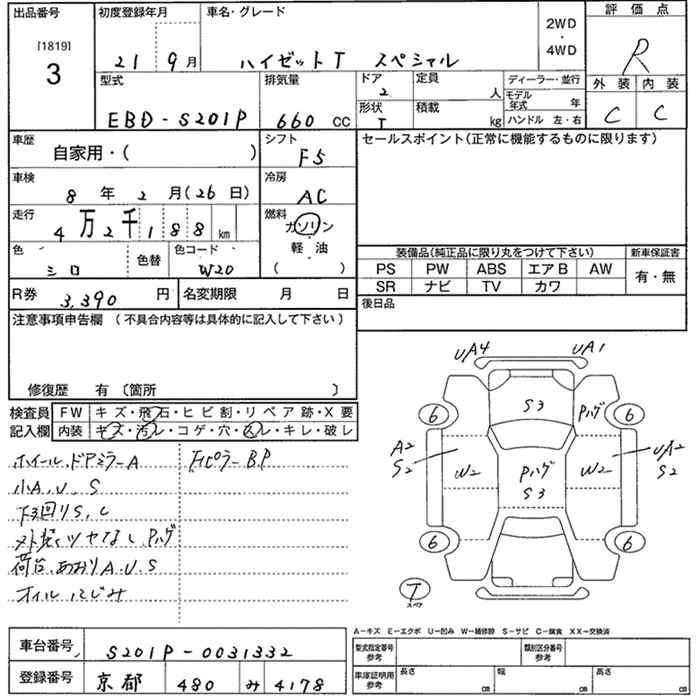 出品番号
[1819]
3
初度登録年月
21 9月
車名・グレード
ハイゼットT スペシャル
2WD
・
4WD
評価点
R
外装 内装
C C
型式
EBD-S201P
排気量
660 cc
ドア
2
定員
人
形状
T
積載
kg
ディーラー・並行
モデル年式 年
ハンドル 左・右
車歴
自家用・( )
シフト
F5
セールスポイント(正常に機能するものに限ります)
車検
8年2月(26日)
冷房
AC
走行
4万2千188km
燃料
ガソリン
・
軽油
( )
色
シロ
色替
色コード
W20
装備品(純正品に限り丸をつけて下さい)
新車保証書
PS PW ABS エアB AW
有・無
SR ナビ TV カワ
R券
3,390円
名変期限 月 日
後日品
注意事項申告欄 (不具合内容等は具体的に記入して下さい)
修復歴 有 〔箇所 〕
検査員
記入欄
FW キズ・飛石・ヒビ割・リペア跡・X要
内装 キズ・汚レ・コゲ・穴・スレ・キレ・破レ
ホイール、ドアミラーA
小A、U、S
下回りS、C
ツヤなし Pハゲ
荷台、あおりA、U、S
オイルにじみ
ピラーB、P
UA4 UA1
S3 Pハゲ
6 6
A2
S2
W2
Pハゲ
S3
W2
UA2
S2
6 6
T
スペア
A−キズ E−エクボ U−凹み W−補修跡 S−サビ C−腐食 XX−交換済
車台番号
S201P-0031332
登録番号
京都 480 み 4178
型式指定番号
参考
類別区分番号
参考
車庫証明用
参考
長さ cm
幅 cm
高さ cm